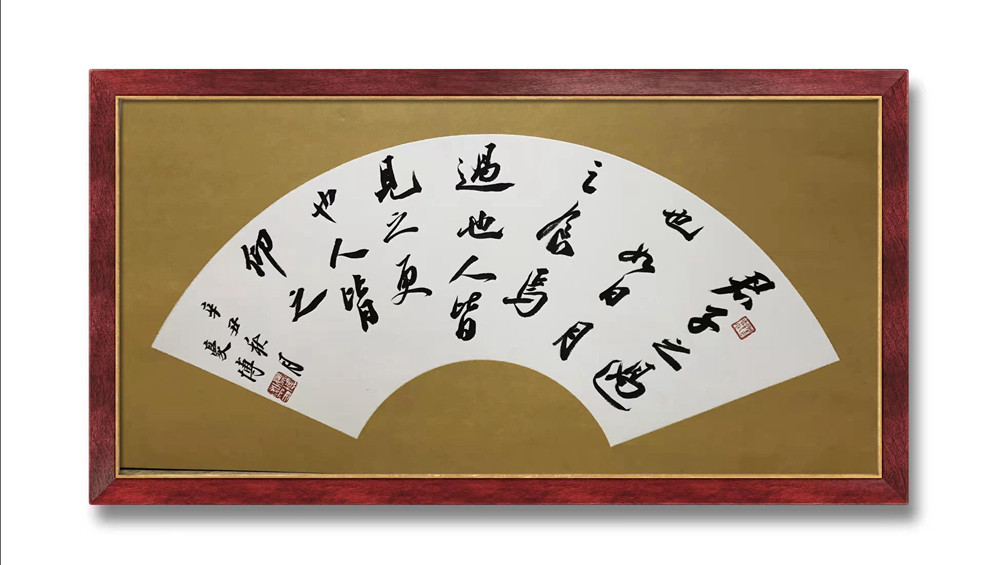 君子之過
也如日月
之食焉
過也人皆
見之更
也人皆
仰之
辛丑秋月
博